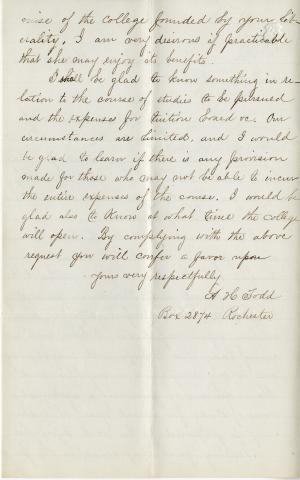 mise of the College founded by your Lib-
erality, I am very desirous if practicable
that she may enjoy its benefits.
I shall be glad to know something in re-
lation to the course of studies to be pursued
and the expenses for tuition board &c. Our
circumstances are limited, and I would
be glad to learn if there is any provision
made for those who may not be able to incur
the entire expenses of the course. I would be
glad also to know at what time the college
will open. By complying with the above
request you will confer a favor upon
Yours very respectfully
A H Todd
Box 2874 Rochester